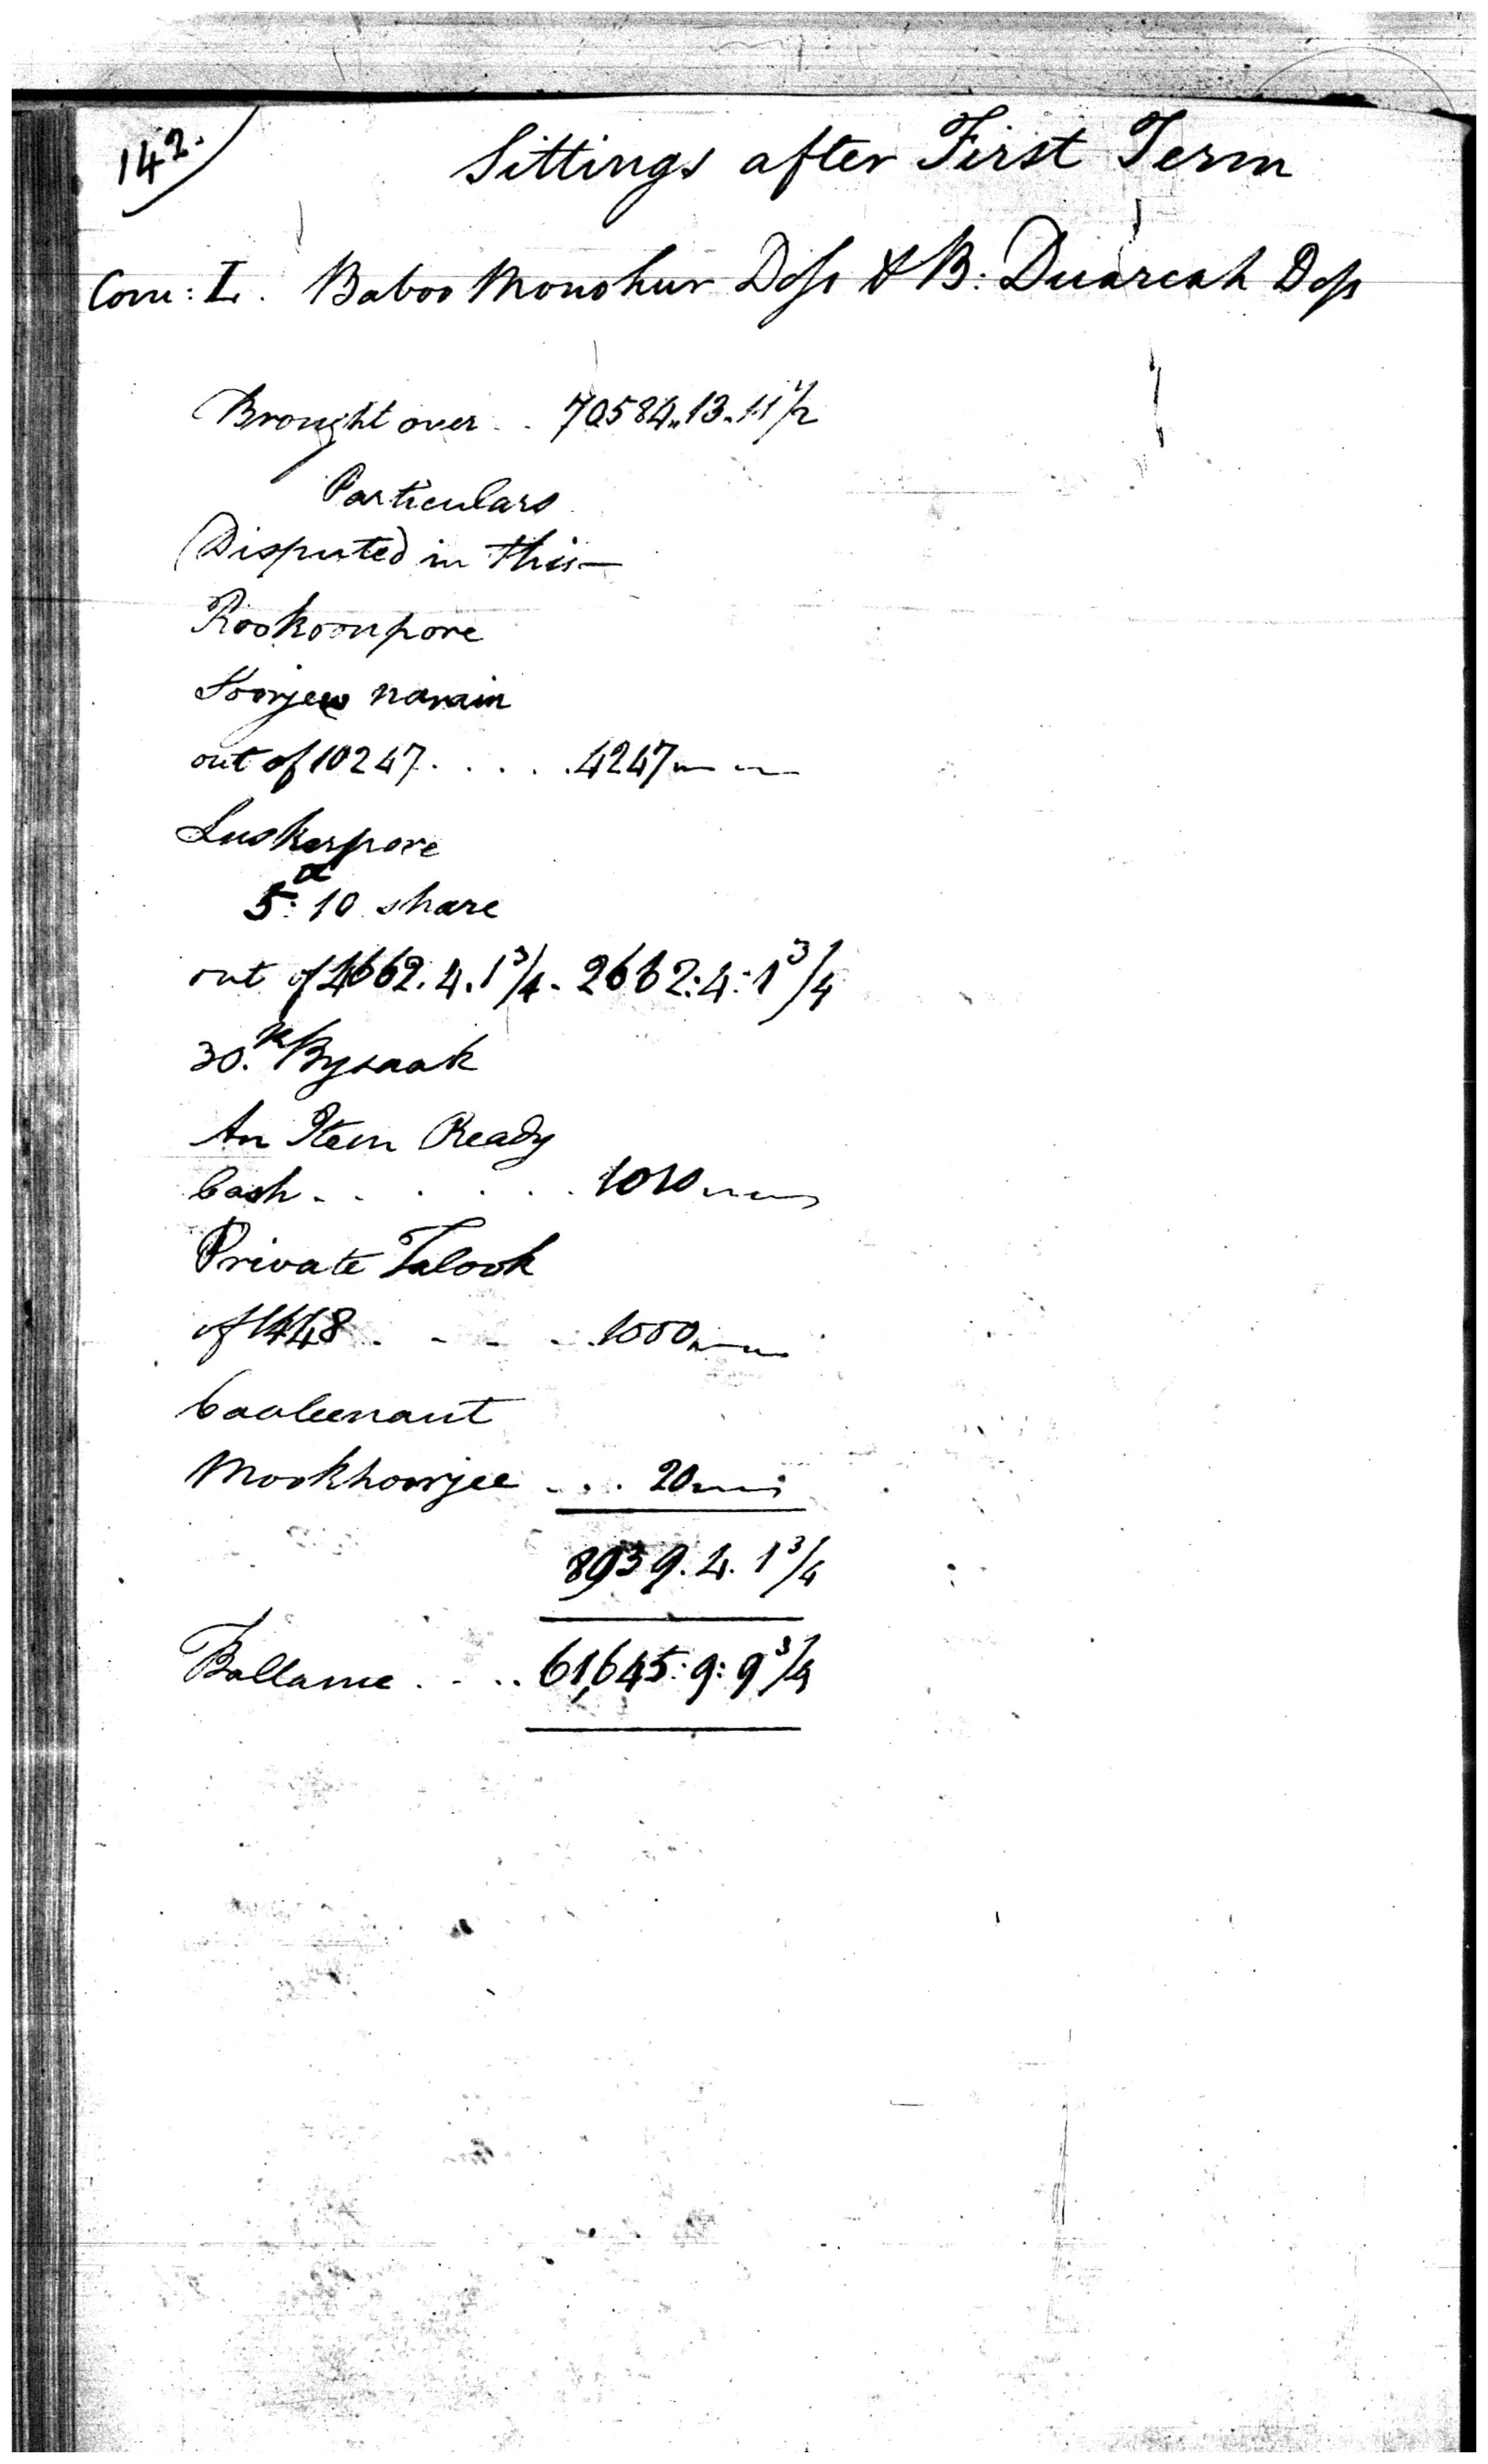 142.
Sittings after First Term
Com: L. Baboo Monohur Doss & B: Duarcah Doss
Brought over .. 70584,,13,,11 1/2
Particulars
Disputed in this—
Rookoonpore
Soorjew narain
out of 10247 . . . . . 4247
Luskerpore
5: 10 share
out of 4662. 4. 1 3/4 - 2662: 4: 1 3/4
30.th Bysaak
An Item Ready
Cash . . . . . . 1010
Private Talook
of 1448 . - - - . 1000
Cauleenaut
Mookhoorjee - . . 20
8939. 4. 1 3/4
Ballance . . . . 61,645: 9: 9 3/4